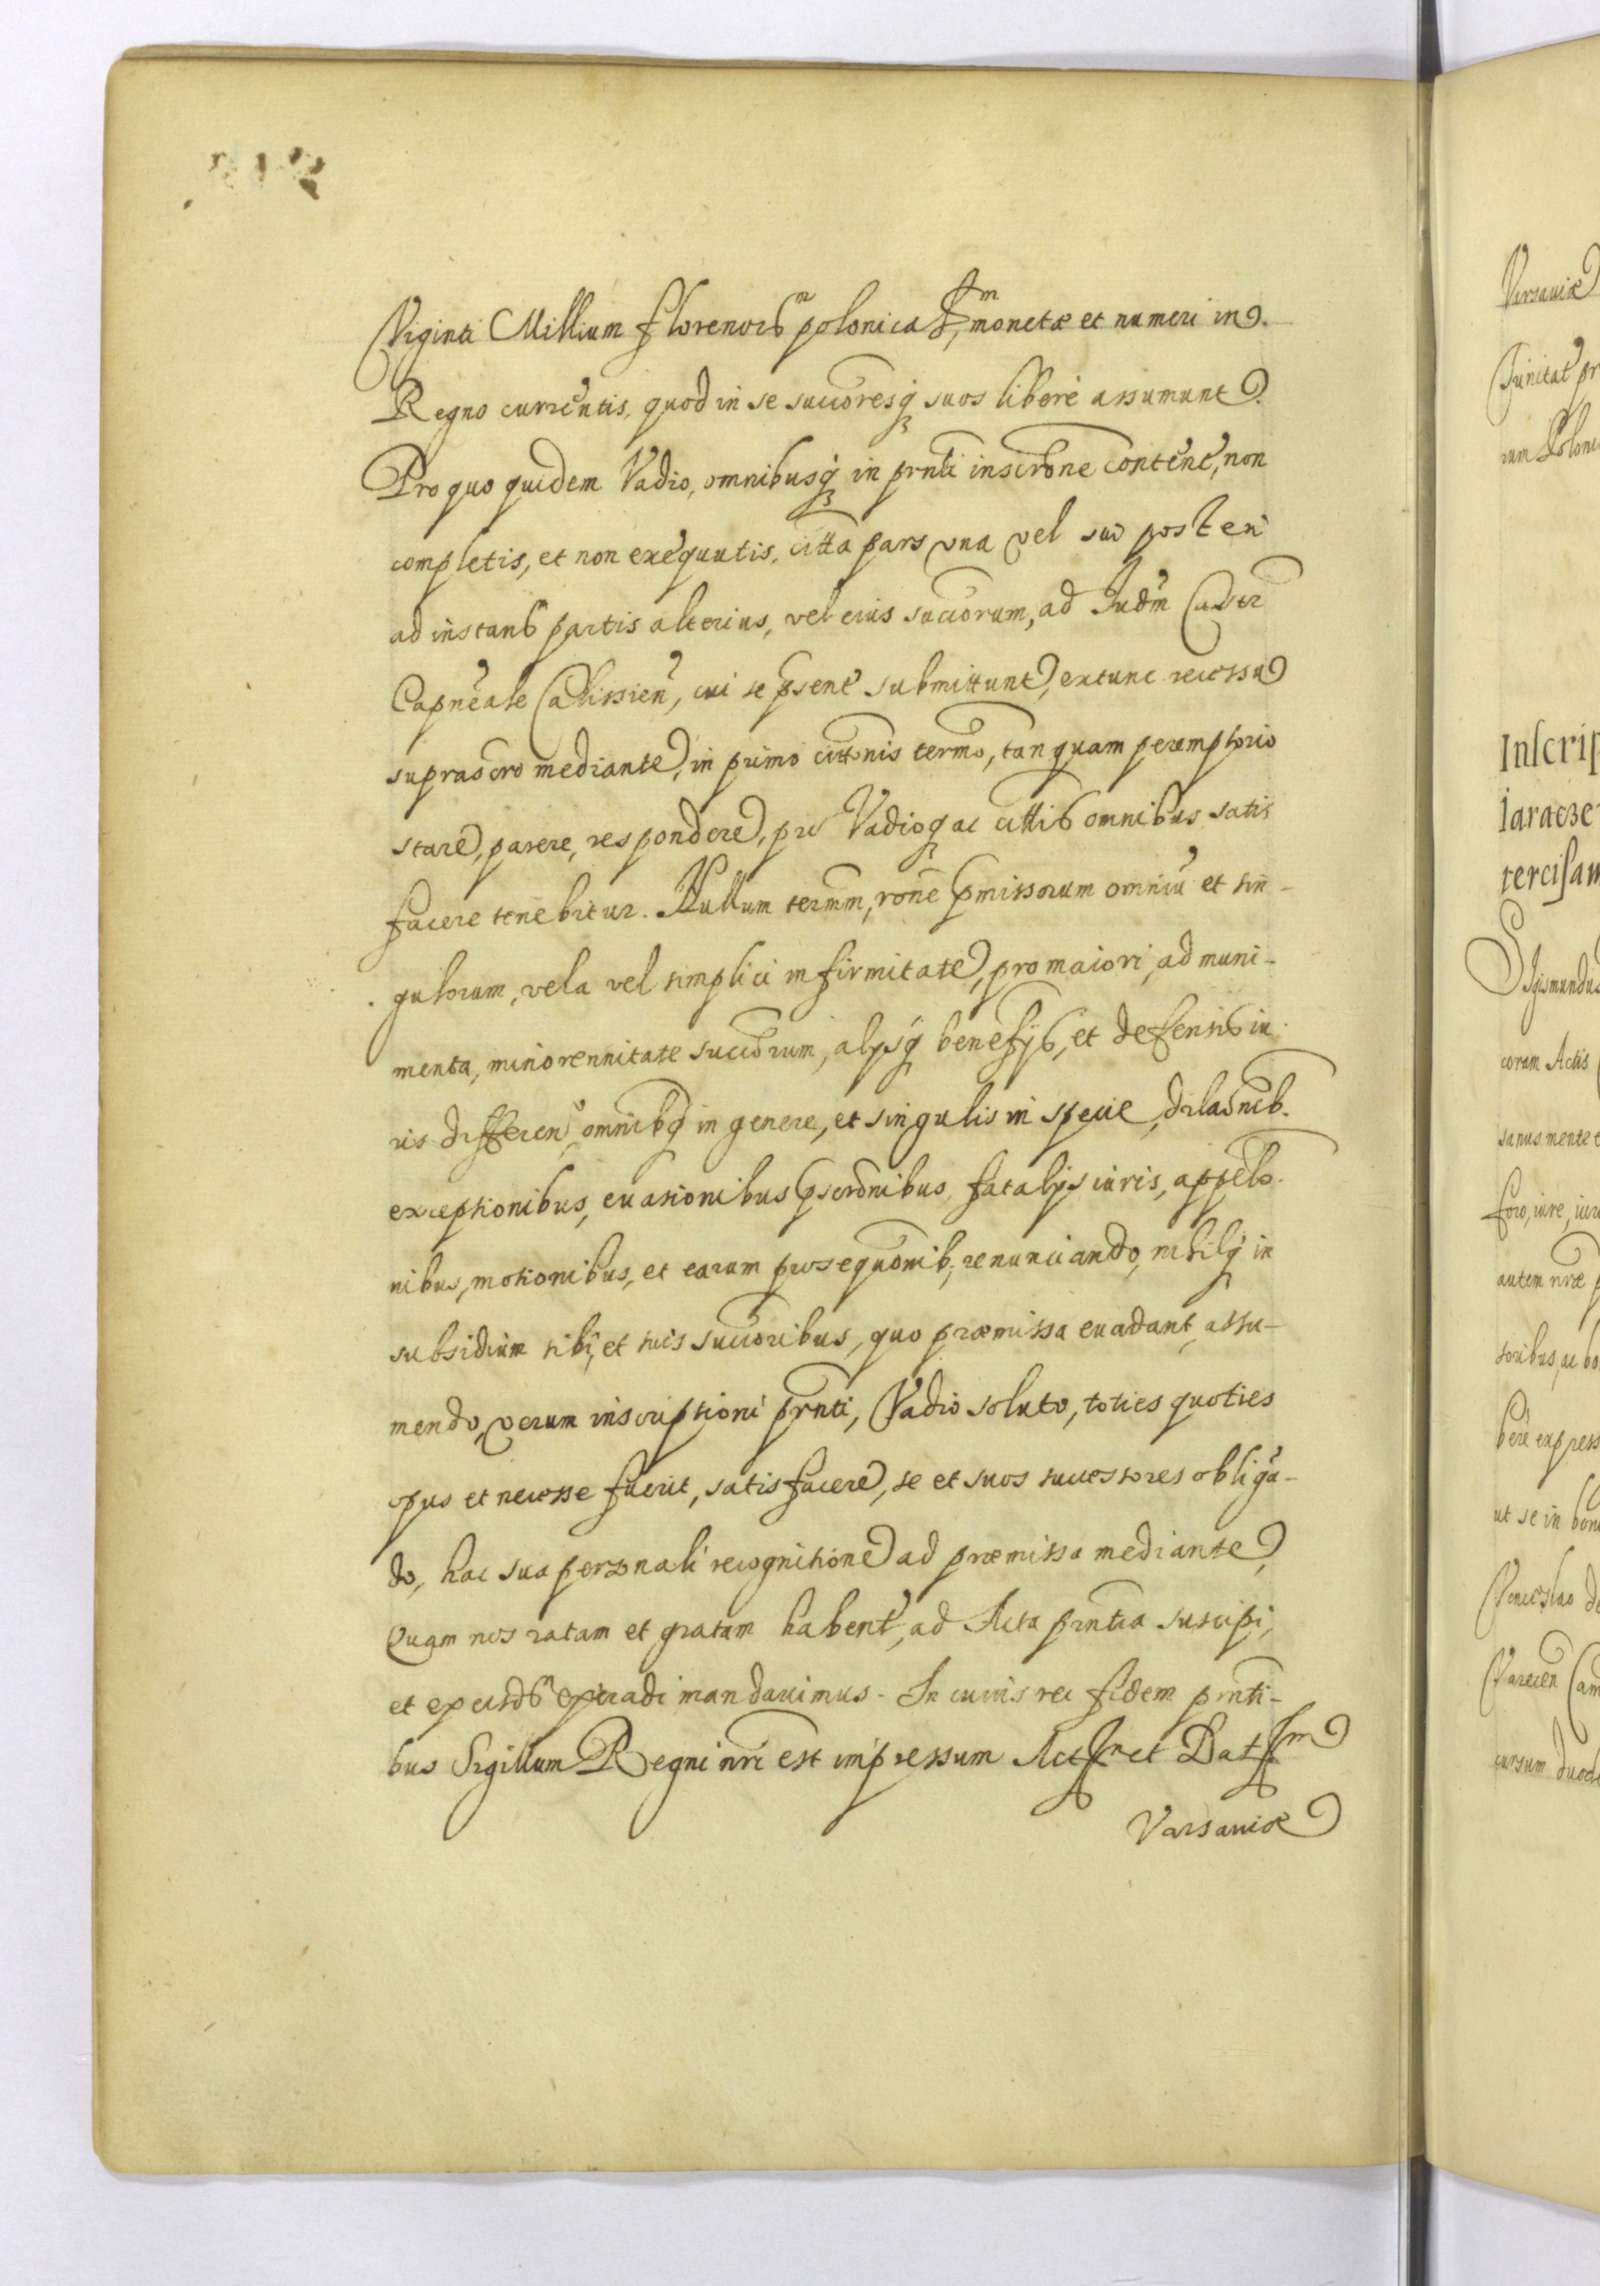 Viginti Millium florenor̃ polonicaꝝm, monetæ et numeri in
Regno currentis, quod in se succoresq̃ suos liberè assumunt.
Pro quo quidem Vadio, omnibusq̃ in prnti inscrone content̃, non
completis, et non exequutis, citta pars vna vel sui posteri
ad instans partis alterius, vel eius succorum, ad Iudm Castr
Capneale Calissien̄, cui se psent submittunt, extunc recessu
suprascro mediante, in primo cittonis termo, tanquam peremptorio
stare, parere, respondere, pro Vadioq̃ ac cittis omnibus satis
facere tenebitur. Nullum termm, rone pmissorum omniū et sin-
gulorum, vela vel simplici infirmitate, pro maiori, ad muni-
menta, minorennitate succorum, alijsq̃ benefijs, et defensis iu
ris differen, omnibq̃ in genere, et singulis in specie, dilaonib.
exceptionibus, euationibus pscronibus, fatalijs iuris, appello
nibus, motionibus, et earum prosequonib, renunciando, nihilq̃ in
subsidium sibi, et suis succoribus, quo præmissa euadant, assu-
mendo, verum inscriptioni prnti, Vadio soluto, toties quoties
opus et necesse fuerit, satisfacere, se et suos successores obligā-
do, hac sua personali recognitione ad præmissa mediante,
Quam nos ratam et gratam habent, ad Acta prntia suscipi,
et ex eisdē extradi mandauimus. In cuius rei fidem prnti-
bus Sigillum Regni nri est impressum Actꝝm et Datꝝm
Varsauiæ
Varsauiæ
Inscrip
iaracze
tercisam
Sigismundus
coram Actis
sanus mente e
foro, iure, iur
autem nræ p
soribus, ac bo
berè express
ut se in bon
Venceslao de
Varecen Cam
cursum duode